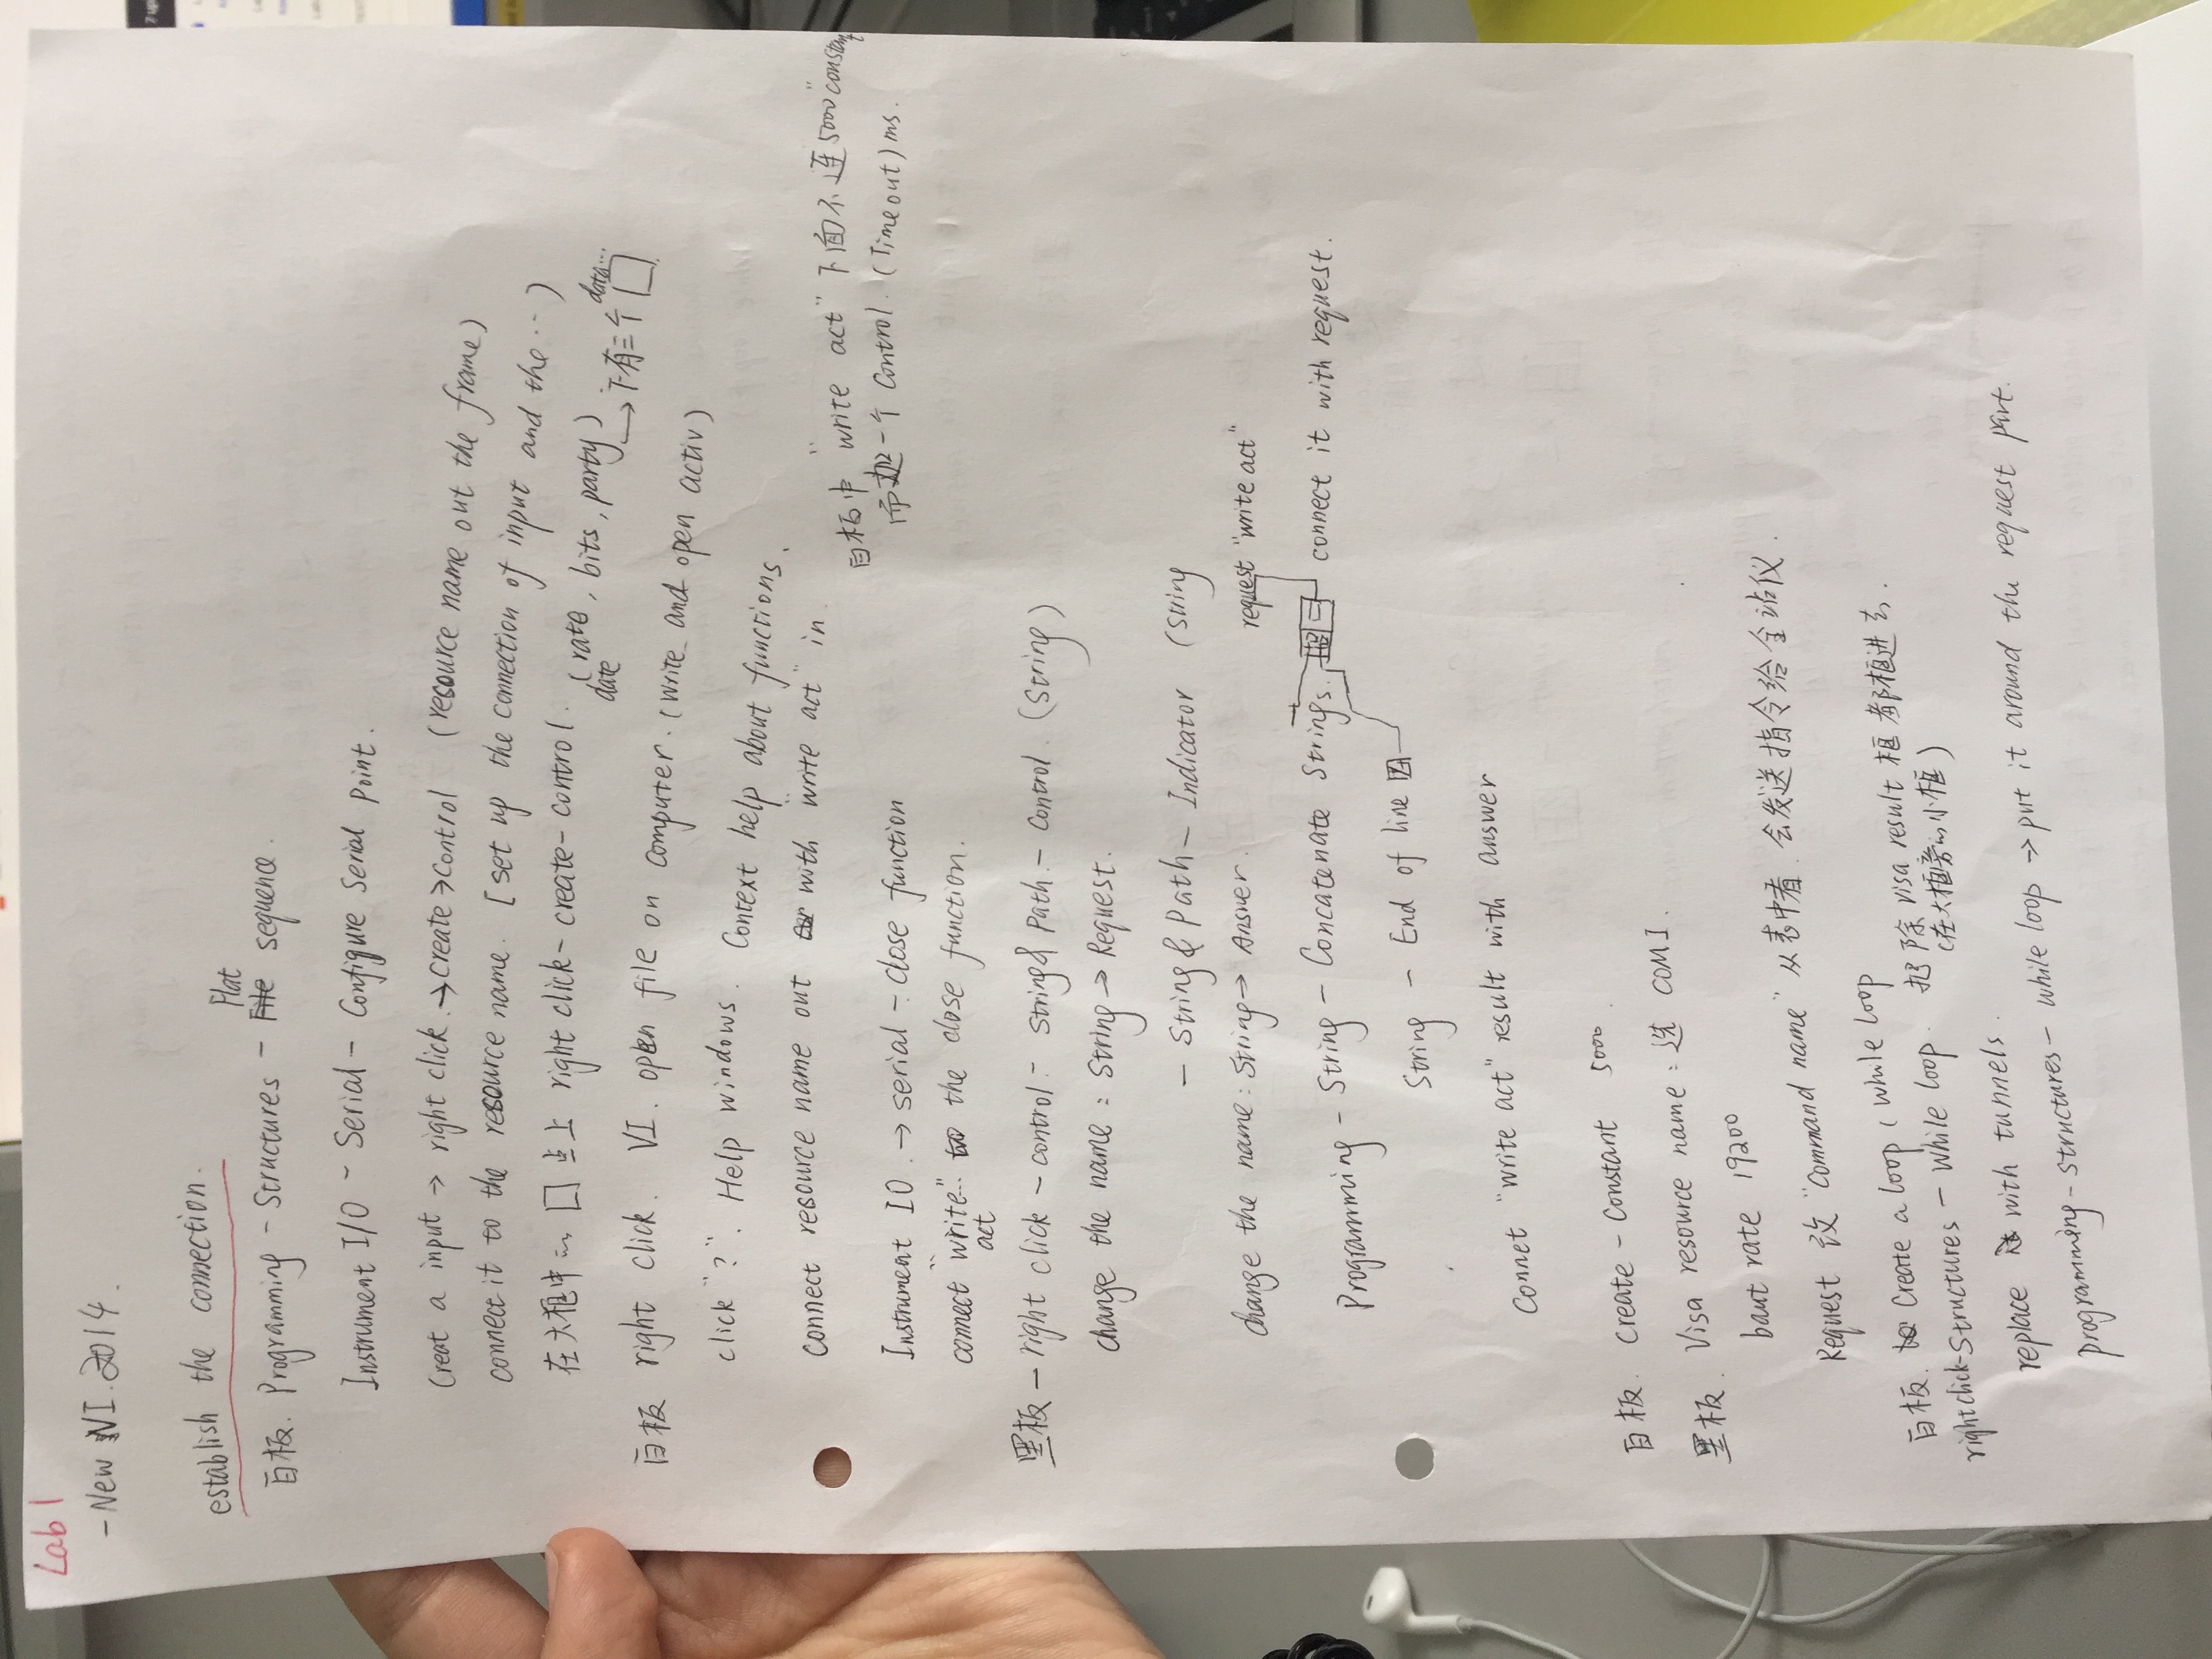 Lab 1
- New NI. 2014.
establish the connection.
Flat
白板. Programming - Structures - File sequence.
Instrument I/O - Serial - Configure Serial Point.
Creat a input → right click. → create → control (resource name out the frame)
connect it to the resource name. [set up the connection of input and the ...)
在大框中的 口 点上 right click - create - control. (rate, bits, party)
date
→ 下有三个 口
data...
白板 right click. VI. open file on computer. (write and open activ)
click "?". Help windows. Context help about functions.
connect resource name out with "write act" in
白板中 "write act" 下面不连 5000 "constant"
而是一个 Control. (Timeout) ms.
Instrument IO. → serial - close function
connect "write" to the close function.
act
黑板 - right click - control - String & Path - Control. (String)
change the name: String → Request.
- String & Path - Indicator (String
change the name: String → Answer.
request "write act"
Programming - String - Concatenate Strings. connect it with request.
String - End of line
Connet "write act" result with answer
白板. Create - Constant 5000.
黑板. Visa resource name: 选 COM1.
baut rate 19200
Request 改 "Command name" 从表中看. 会发送指令给全站仪.
白板. to Create a loop ( while loop
right click - Structures - while loop. 把除 visa result 框都框进去.
(在大框旁的小框)
replace it with tunnels.
programming - structures - while loop → put it around the request part.